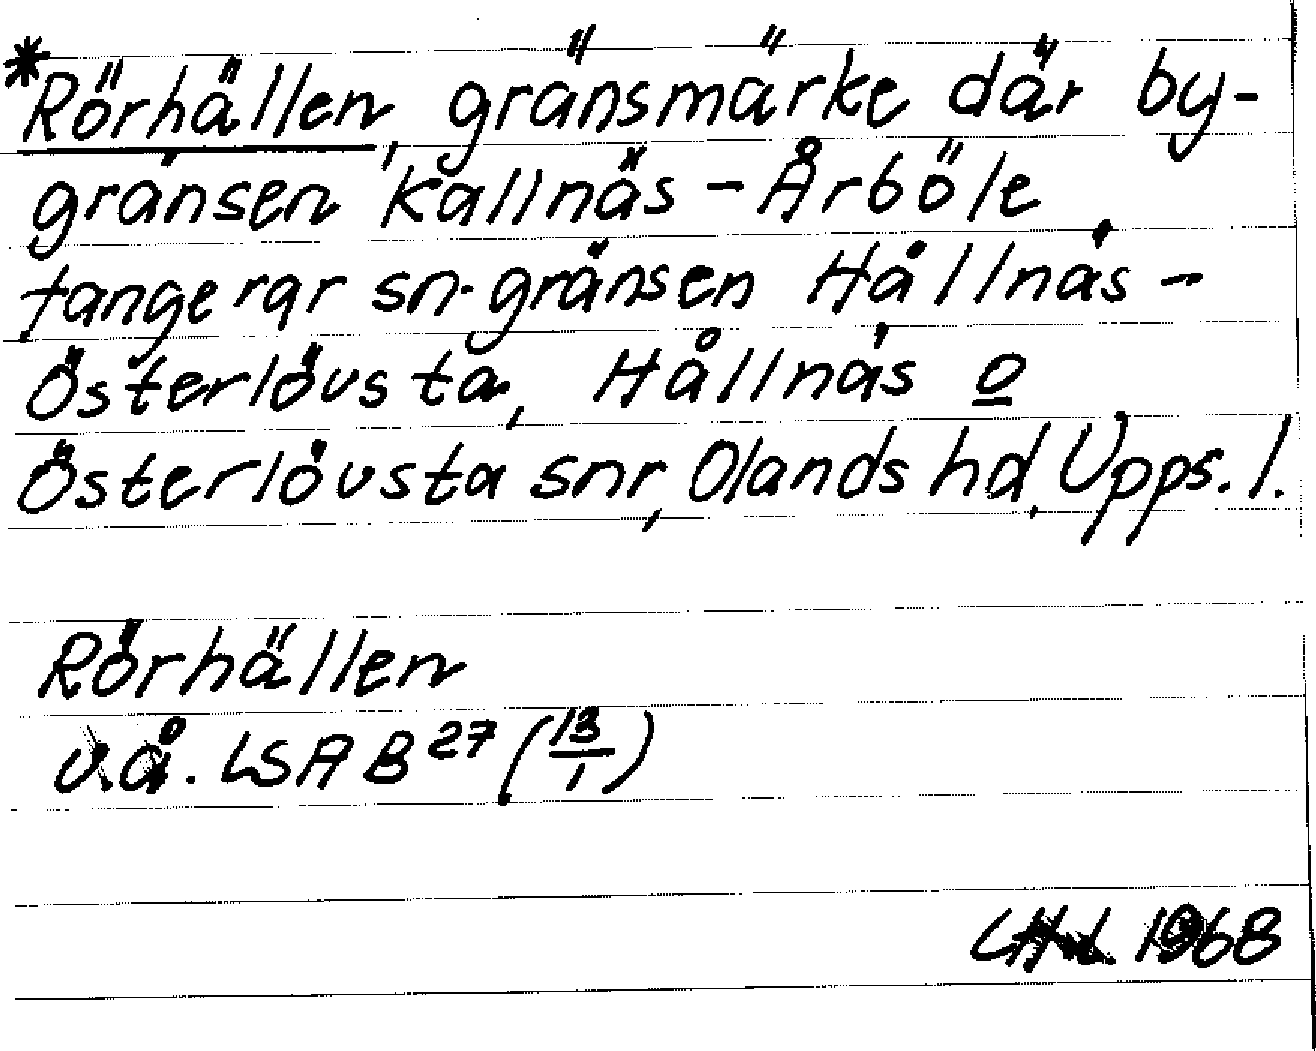 *Rörhällen, gränsmärke där by-
gränsen Kallnäs - Årböle
tangerar sn-gränsen Hållnäs -
Österlövsta, Hållnäs o
Österlövsta snr, Olands hd, Upps. l.
Rörhällen
u.å. LSA B27 (13/1)
1968